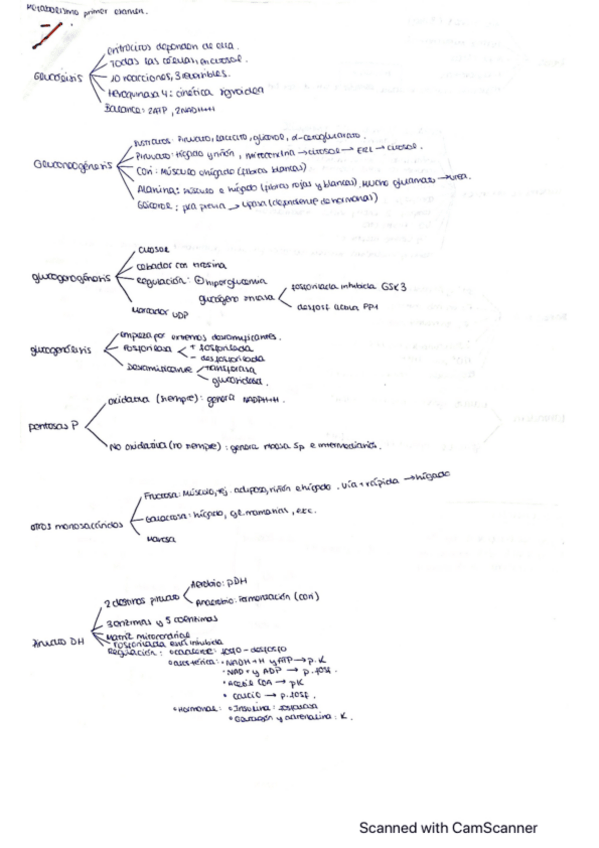 Metabolismo primer examen.
Glucólisis
eritrocitos dependen de ella.
Todas las células, en citosol.
10 reacciones, 3 irreversibles.
Hexoquinasa 4: cinética sigmoidea
Balance: 2ATP, 2NADH+H
Gluconeogénesis
sustratos: Piruvato, lactato, glicerol, α-cetoglutarato.
Piruvato: hígado y riñón, mitocondria → citosol → → citosol.
Cori: Músculo e hígado (fibras blancas)
Alanina: músculo e hígado (fibras rojas y blancas), mucho glutamato → urea.
Glicerol: → lipasa (dependiente de hormonas)
glucogenogénesis
citosol
cebador con tirosina
Regulación: ⊕ hiperglucemia
glucógeno sintasa
fosforilada inhibida GSK3
desfosf activa PP1
Marcador UDP
glucogenólisis
empieza por extremos desramificantes.
Fosforilasa
+ fosforilada
- desfosforilada
Desramificante
transferasa
glucosidasa.
pentosas P
oxidativa (siempre): genera NADPH+H.
No oxidativa (no siempre): genera ribosa 5p e intermediarios.
otros monosacáridos
Fructosa: Músculo, tej. adiposo, riñón e hígado. vía + rápida → hígado
Galactosa: hígado, gl. mamarias, etc.
Manosa
Piruvato DH
2 destinos piruvato
Aerobio: PDH
Anaerobio: Fermentación (cori)
3 enzimas y 5 coenzimas
Matriz mitocondrial
Fosforilada está inhibida
Regulación: covalente: fosfo-desfosfo
alostérica: • NADH+H y ATP → p.K
• NAD+ y ADP → p.fosf.
• acetil CoA → pK
• calcio → p.fosf.
• Hormonas: • Insulina: fosfatasa
• Glucagón y adrenalina: K.
Scanned with CamScanner